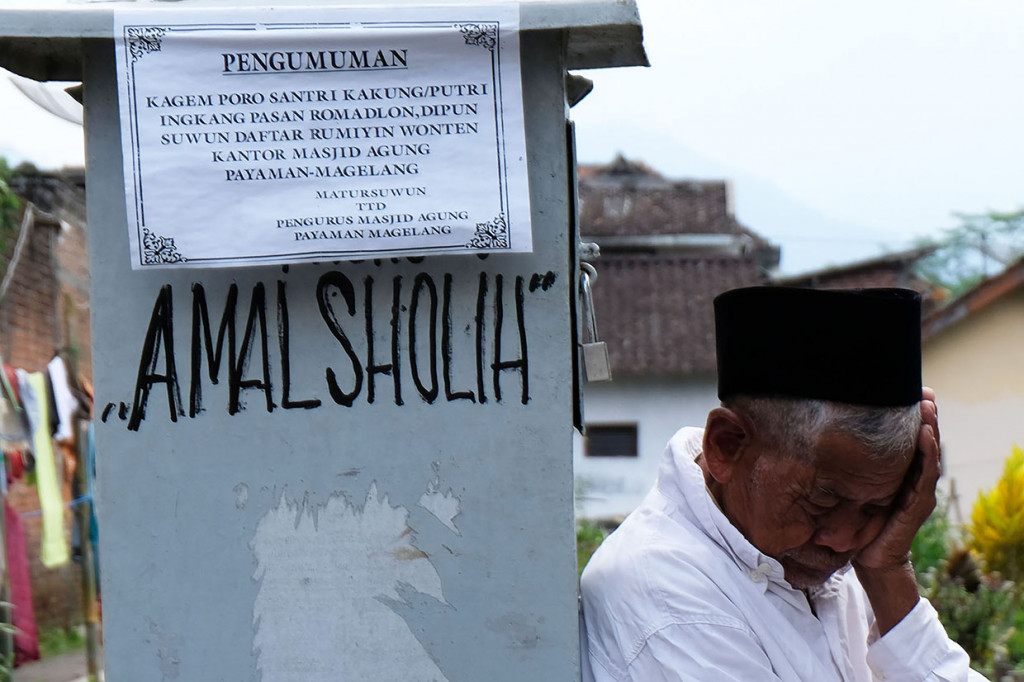 PENGUMUMAN
KAGEM PORO SANTRI KAKUNG/PUTRI
INGKANG PASAN ROMADLON,DIPUN
SUWUN DAFTAR RUMIYIN WONTEN
KANTOR MASJID AGUNG
PAYAMAN-MAGELANG
MATURSUWUN
TTD
PENGURUS MASJID AGUNG
PAYAMAN MAGELANG
„AMALSHOLIH"